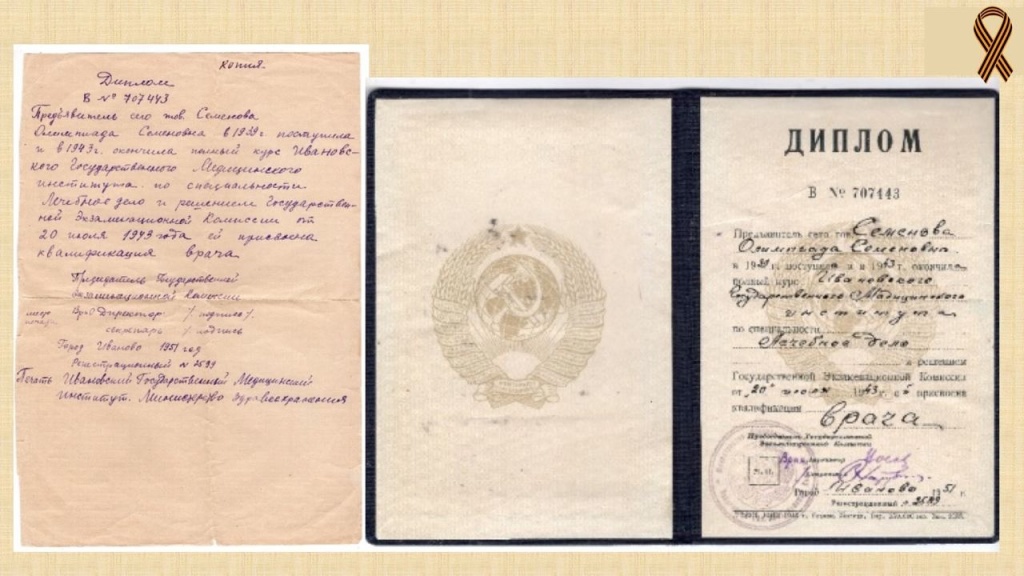 копия
Диплом
В № 707443
Предъявитель сего тов. Семенова
Олимпиада Семеновна в 1939 г поступила
и в 1943 г. окончила полный курс Ивановс-
кого Государственного Медицинского
института по специальности
Лечебное дело и решением Государствен-
ной Экзаминационной Комиссии от
20 июля 1943 года ей присвоена
квалификация врача
Председатель Государственной
экзаминационной комиссии
Директор /подпись/.
секретарь /подпись
Город Иваново 1951 год
Регистрационный № 2599
Печать Ивановский Государственный Медицинский
институт. Здравоохранения
ДИПЛОМ
В № 707443
Предъявитель сего тов. Семенова
Олимпиада Семеновна
в 1939 г. поступила и в 1943 г. окончила
полный курс Ивановского
Государственного Медицинского
института
по специальности
Лечебное дело
и решением
Государственной Экзаменационной Комиссии
от "20" июля 1943 г. ей присвоена
квалификация
врача
Председатель Государственной
Экзаменационной Комиссии
Директор
Секретарь
Город Иваново 1951 г.
Регистрационный № 2599